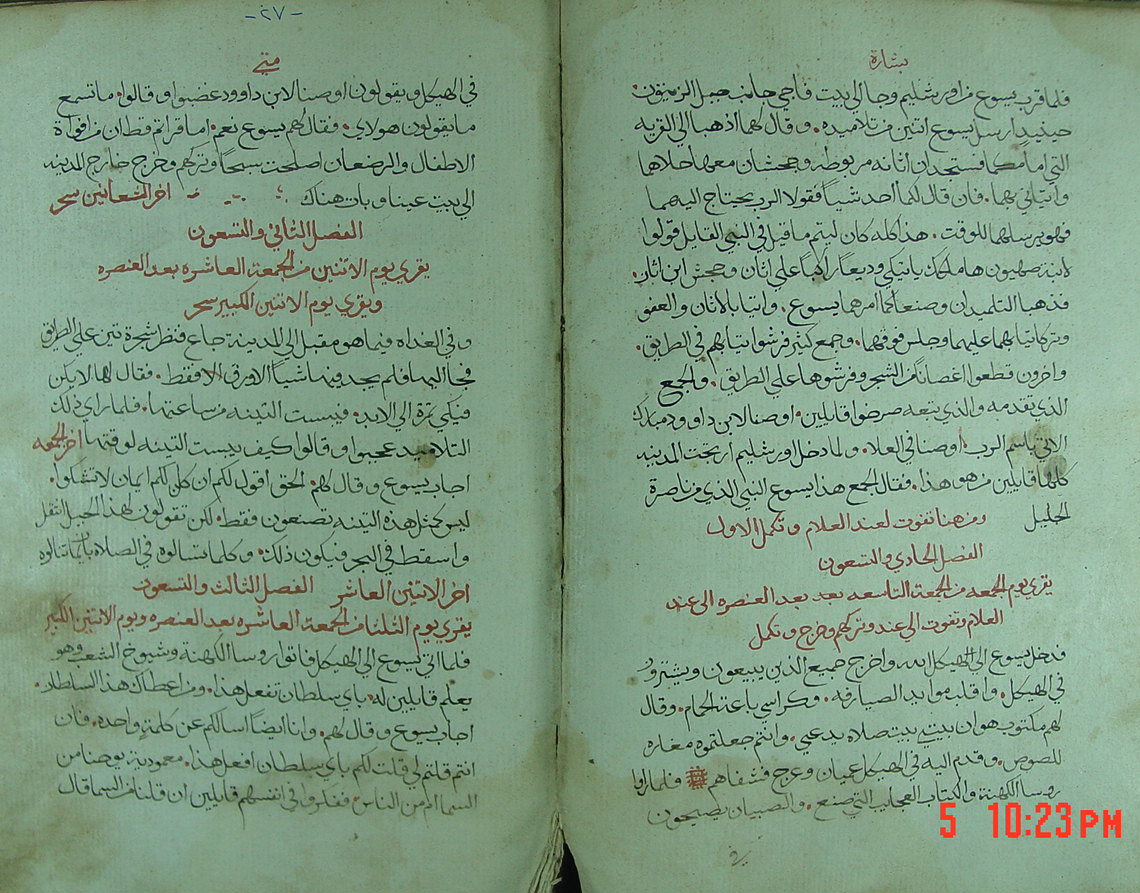 بشارة
فلما قرب يسوع من اورشليم وجا الى بيت فاجي جانب جبل الزيتون.
حينيذ ارسل يسوع اثنين من تلاميذه. وقال لهما اذهبا الى القريه
التي امامكما فستجدان اتانه مربوطه وجحشان معها حلاها
واتياني بهما. فان قال لكما احد شيا فقولا الرب يحتاج اليهما
فهو يرسلهما للوقت. هذا كله كان ليتم ما قيل في النبي القايل قولوا
لابنة صهيون ها ملكك ياتيكي وديعا راكبا على اتان وجحش ابن اتان.
فذهبا التلميذان وصنعا كما امرهما يسوع. واتيا بالاتان والعفو
وتركا ثيابهما عليهما وجلس فوقهما. وجمع كثير فرشوا ثيابهم في الطريق.
واخرون قطعوا اغصانا من الشجر وفرشوها على الطريق. والجمع
الذي تقدمه والذي يتبعه صرخوا قايلين. اوصنا لابن داوود مبارك
الاتي باسم الرب اوصنا في العلا. ولما دخل اورشليم ارتجت المدينه
كلها قايلين من هو هذا. فقال الجمع هذا يسوع النبي الذي من ناصرة
الجليل ومن هنا تفوت لعند العلام وتكمل الاول
الفصل الحادي والتسعون
يقري يوم الجمعه من الجمعة التاسعه بعد العنصره الى عند
العلام وتفوت الى عند وتركهم وخرج وتكمل
فدخل يسوع الى الهيكل واخرج جميع الذين يبيعون ويشترون
في الهيكل. واقلب موايد الصيارفه. وكراسي باعة الحمام. وقال
لهم مكتوب هو ان بيتي بيت صلاه يدعى. وانتم جعلتموه مغاره
للصوص. وقدم اليه في الهيكل عميان وعرج فشفاهم فلما راوا
روسا الكهنة والكتاب العجايب التي صنع. والصبيان يصيحون
-٢٧-
متى
في الهيكل ويقولون اوصنا لابن داوود غضبوا وقالوا. ما تسمع
ما يقولون هولاي. فقال لهم يسوع نعم. اما قراتم قط ان من افواة
الاطفال والرضعان اصلحت سبحا وتركهم وخرج خارج المدينه
الى بيت عينا وبات هناك اخر الشعانين سحر
الفصل الثاني والتسعون
يقري يوم الاثنين من الجمعة العاشره بعد العنصره
ويقري يوم الاثنين الكبير سحر
وفي الغداه فيما هو مقبل الى المدينة جاع فنظر شجرة تين على الطريق
فجا اليها فلم يجد فيها شيا الا ورق الا فقط. فقال لها لا يكن
فيكي ثمرة الى الابد. فيبست التينه من ساعتها. فلما راي ذلك
التلاميد عجبوا وقالوا كيف يبست التينه لوقتها اخر الجمعه
اجاب يسوع وقال لهم. الحق اقول لكم ان كان لكم ايمان لا تشكوا.
ليس كمثل هذه التينه تصنعون فقط. لكن تقولون لهذا الجبل انتقل
واسقط في البحر فيكون ذلك. وكلما تسالوه في الصلاة بايمان تنالوه
اخر الاثنين العاشر الفصل الثالث والتسعون
يقري يوم الثلثا من الجمعة العاشره بعد العنصره ويوم الاثنين الكبير
فلما اتى يسوع الى الهيكل فاتوا روسا الكهنة وشيوخ الشعب وهو
يعلم قايلين له. باي سلطان تفعل هذا. ومن اعطاك هذا السلطان.
اجاب يسوع وقال لهم. وانا ايضا اسالكم عن كلمة واحده. فان
انتم قلتم لي قلت لكم باي سلطان افعل هذا. معمودية يوحنا من
السما ام من الناس. ففكروا في انفسهم قايلين ان قلنا من السما قال
5 10:23PM